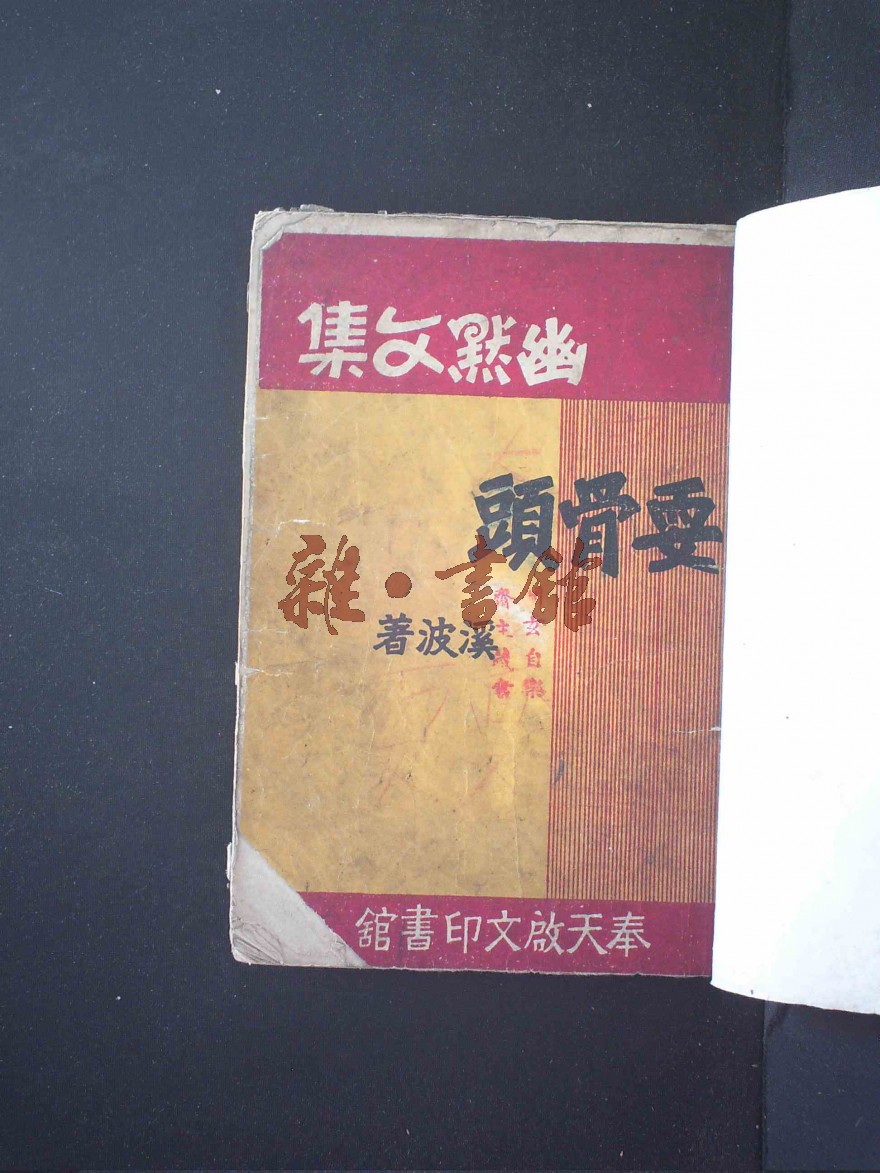 幽默文集
耍骨頭
溪波著
玄自樂
齋主藏書
奉天啟文印書館
雜·書館